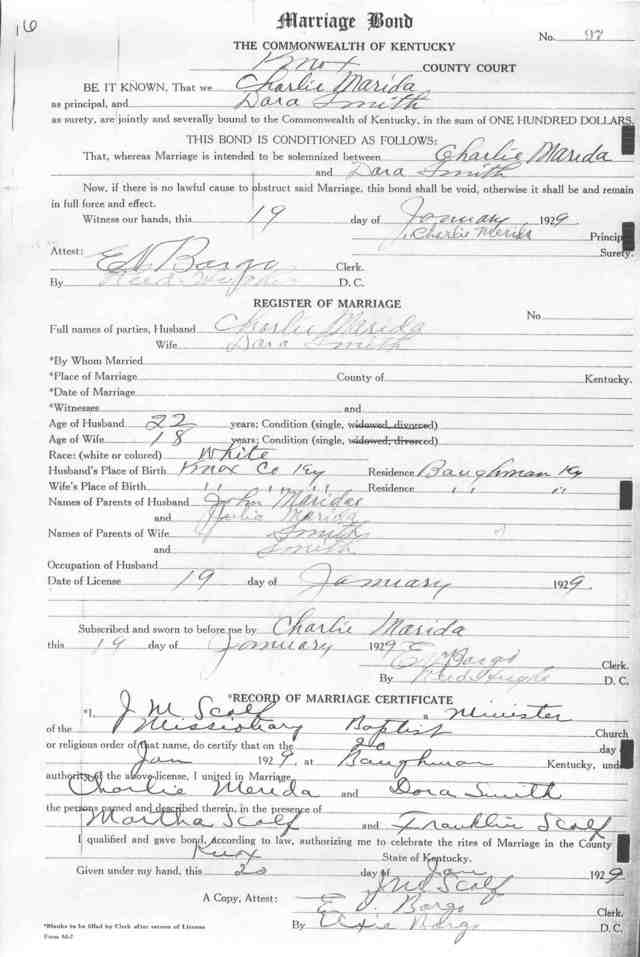 16
Marriage Bond
No. 97
THE COMMONWEALTH OF KENTUCKY
Knox COUNTY COURT
BE IT KNOWN, That we Charlie Marida
as principal, and Dara Smith
as surety, are jointly and severally bound to the Commonwealth of Kentucky, in the sum of ONE HUNDRED DOLLARS.
THIS BOND IS CONDITIONED AS FOLLOWS:
That, whereas Marriage is intended to be solemnized between Charlie Marida
and Dara Smith
Now, if there is no lawful cause to obstruct said Marriage, this bond shall be void, otherwise it shall be and remain
in full force and effect.
Witness our hands, this 19 day of January 1929
Charlie Merida Princip
Surety.
Attest:
Bargo Clerk.
By D. C.
REGISTER OF MARRIAGE
No.
Full names of parties, Husband Charlie Marida
Wife Dara Smith
*By Whom Married
*Place of Marriage County of Kentucky.
*Date of Marriage
*Witnesses and
Age of Husband 22 years; Condition (single, widowed, divorced)
Age of Wife 18 years; Condition (single, widowed, divorced)
Race: (white or colored) White
Husband's Place of Birth Knox Co Ky Residence Baughman Ky
Wife's Place of Birth " " " " Residence " "
Names of Parents of Husband John Maridas
and Julia Marida
Names of Parents of Wife Smith
and Smith
Occupation of Husband
Date of License 19 day of January 1929
Subscribed and sworn to before me by Charlie Marida
this 19 day of January 1929
Bargo Clerk.
By D. C.
*RECORD OF MARRIAGE CERTIFICATE
*I, J M Scalf a Minister
of the Missionary Baptist Church
or religious order of that name, do certify that on the 20 day
Jan 1929, at Baughman Kentucky, und
authority of the above license, I united in Marriage
Charlie Merida and Dora Smith
the persons named and described therein, in the presence of
Martha Scalf and Franklin Scalf
I qualified and gave bond, according to law, authorizing me to celebrate the rites of Marriage in the County
Knox State of Kentucky.
Given under my hand, this 20 day of Jan 1929
J.M. Scalf
A Copy, Attest: Bargo Clerk.
By Bargo D. C.
*Blanks to be filled by Clerk after return of License